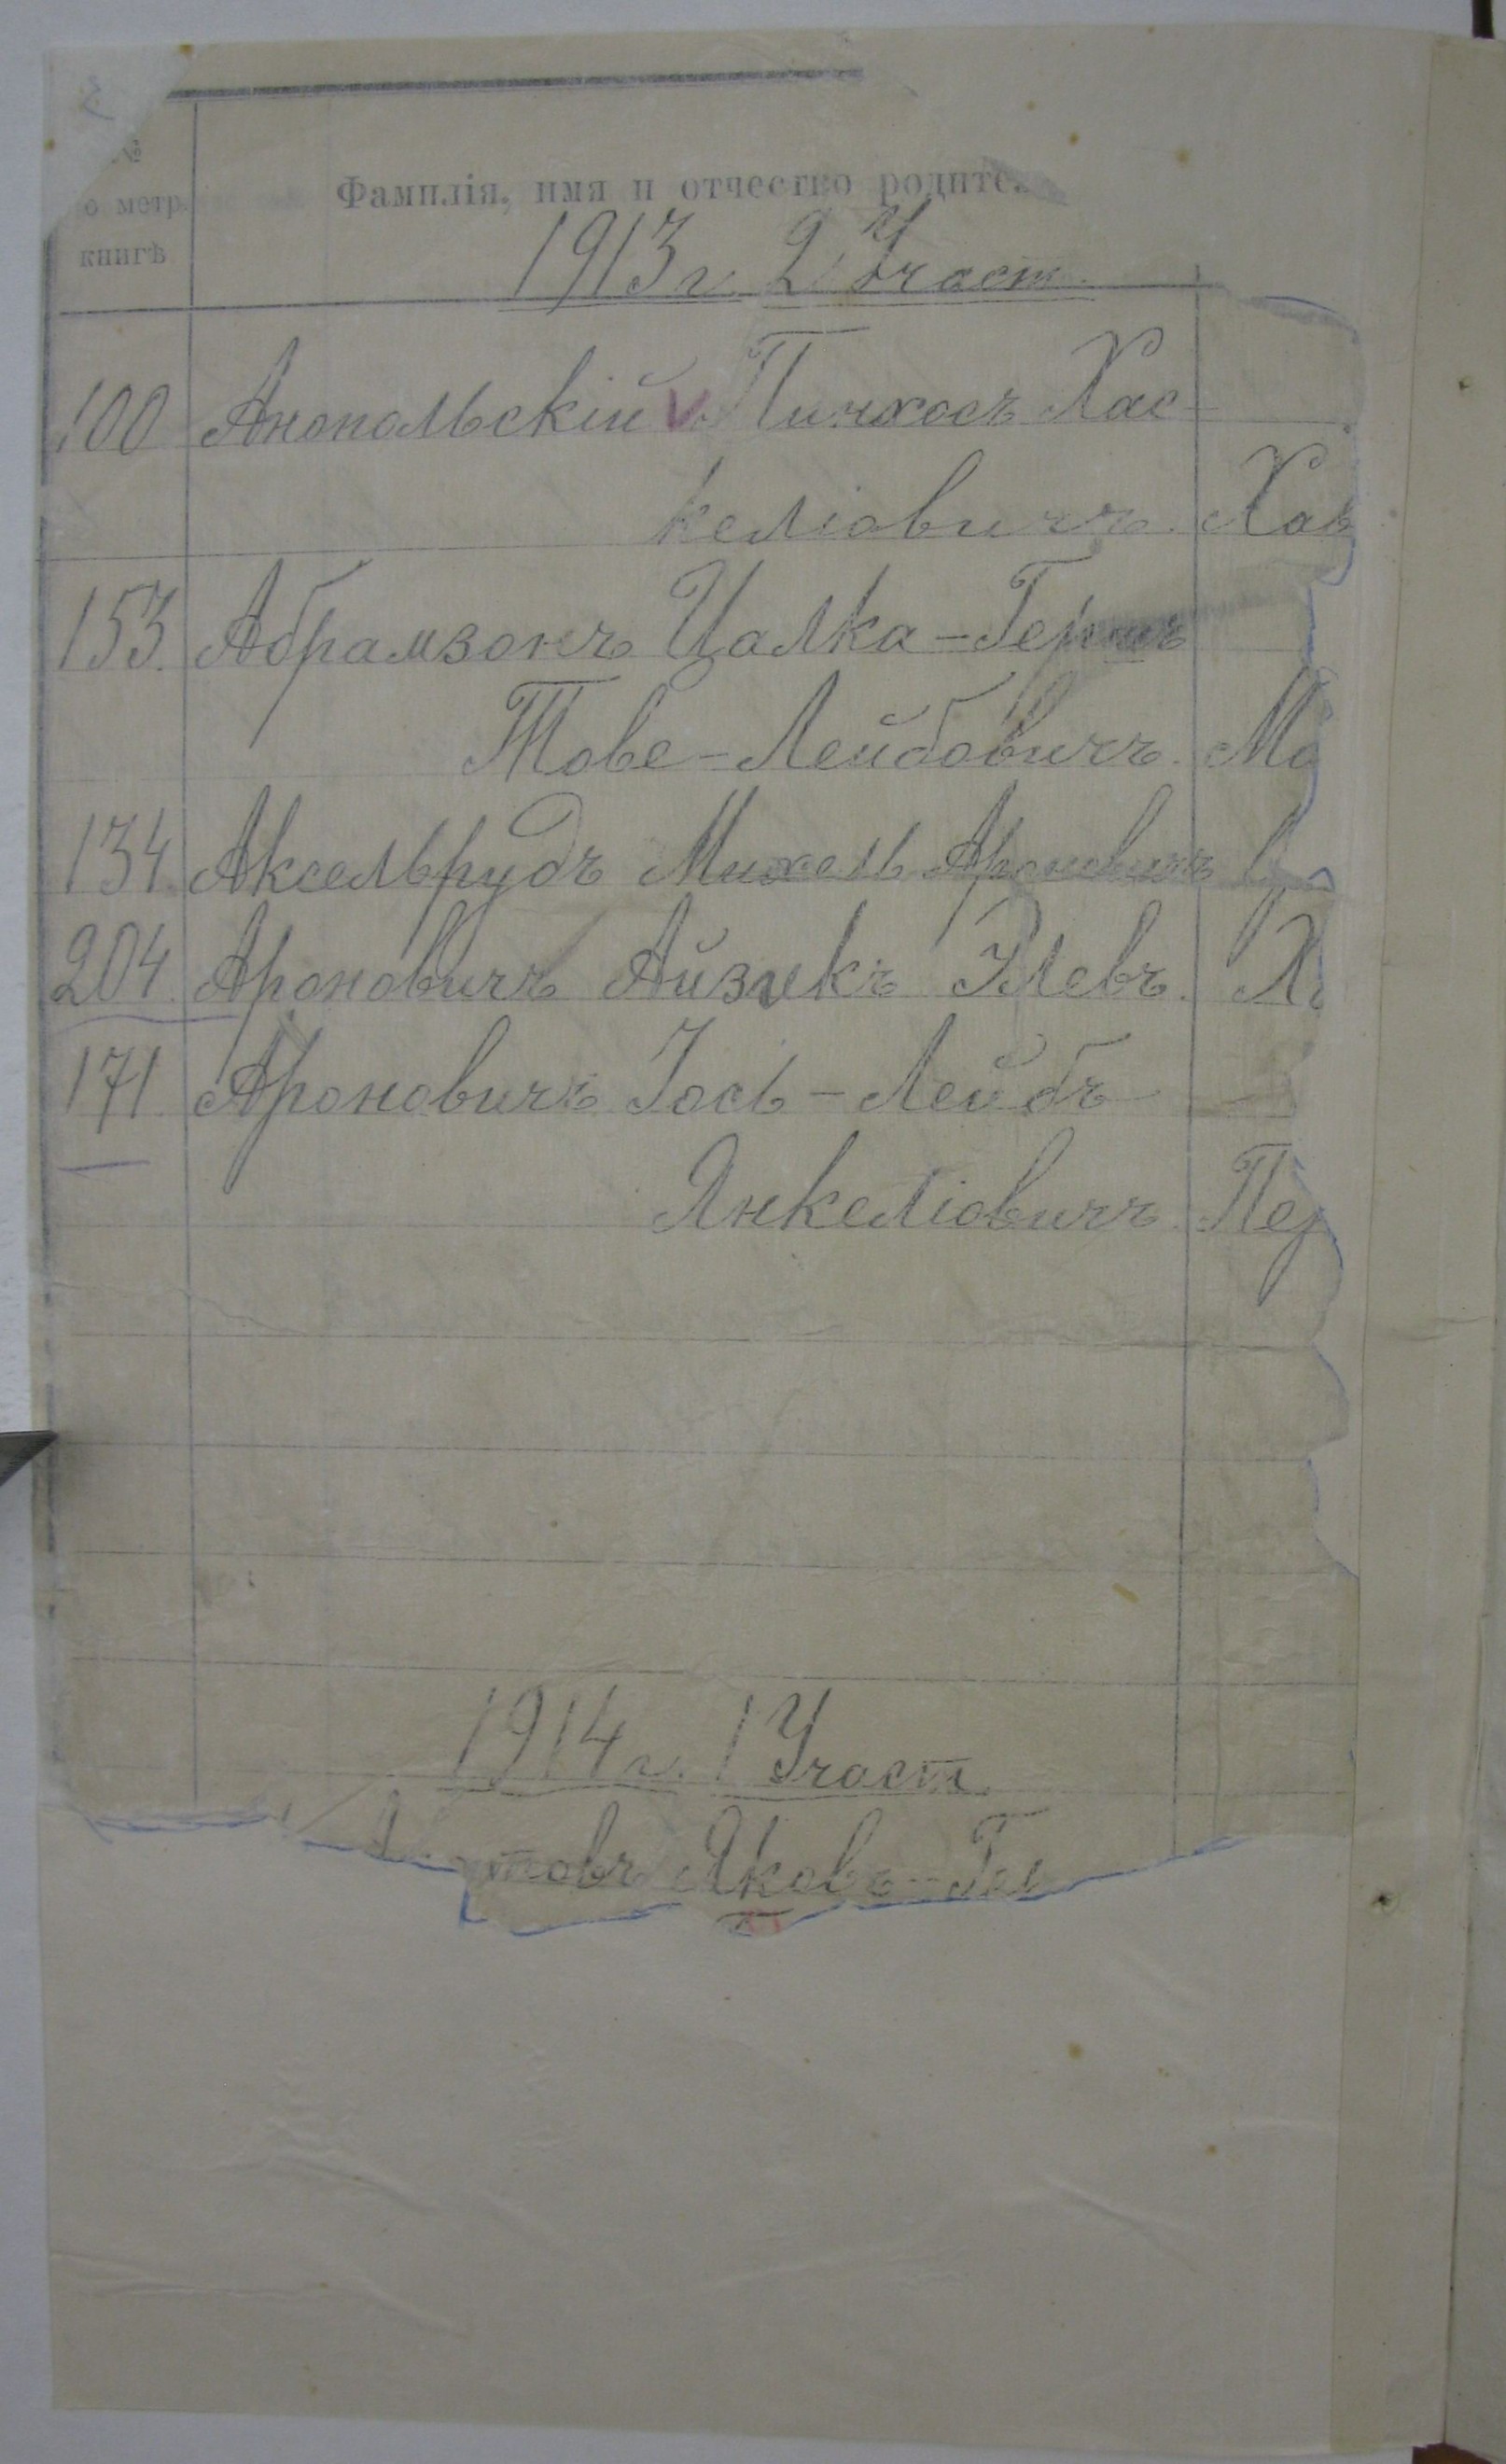 №
о метр.
книгѣ
Фамилія, имя и отчество родите
1913 г. 2 Участ.
100 Анопольскій Пинхосъ Хас-
келіовичъ. Хав
153. Абрамзонъ Цалка-Гершъ
Тове-Лейбовичъ. Ма
134 Аксельрудъ Михель Ароновичъ
204. Ароновичъ Айзикъ Элевъ. Х
171 Ароновичъ Іось-Лейбъ
Янкеліовичъ. Пер
1914 г. 1 Участ.
товъ Яковъ-